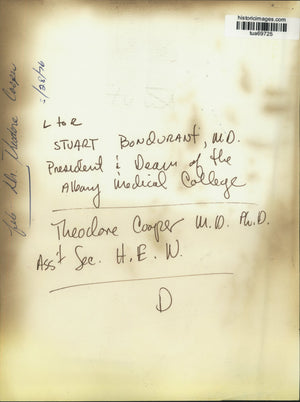 historicimages.com
tua69725
File Dr. Theodore Cooper
L to R
STUART BONDURANT, M.D.
President & Dean of the
Albany Medical College
Theodore Cooper M.D. Ph.D.
Ass't Sec. H.E.W.
D